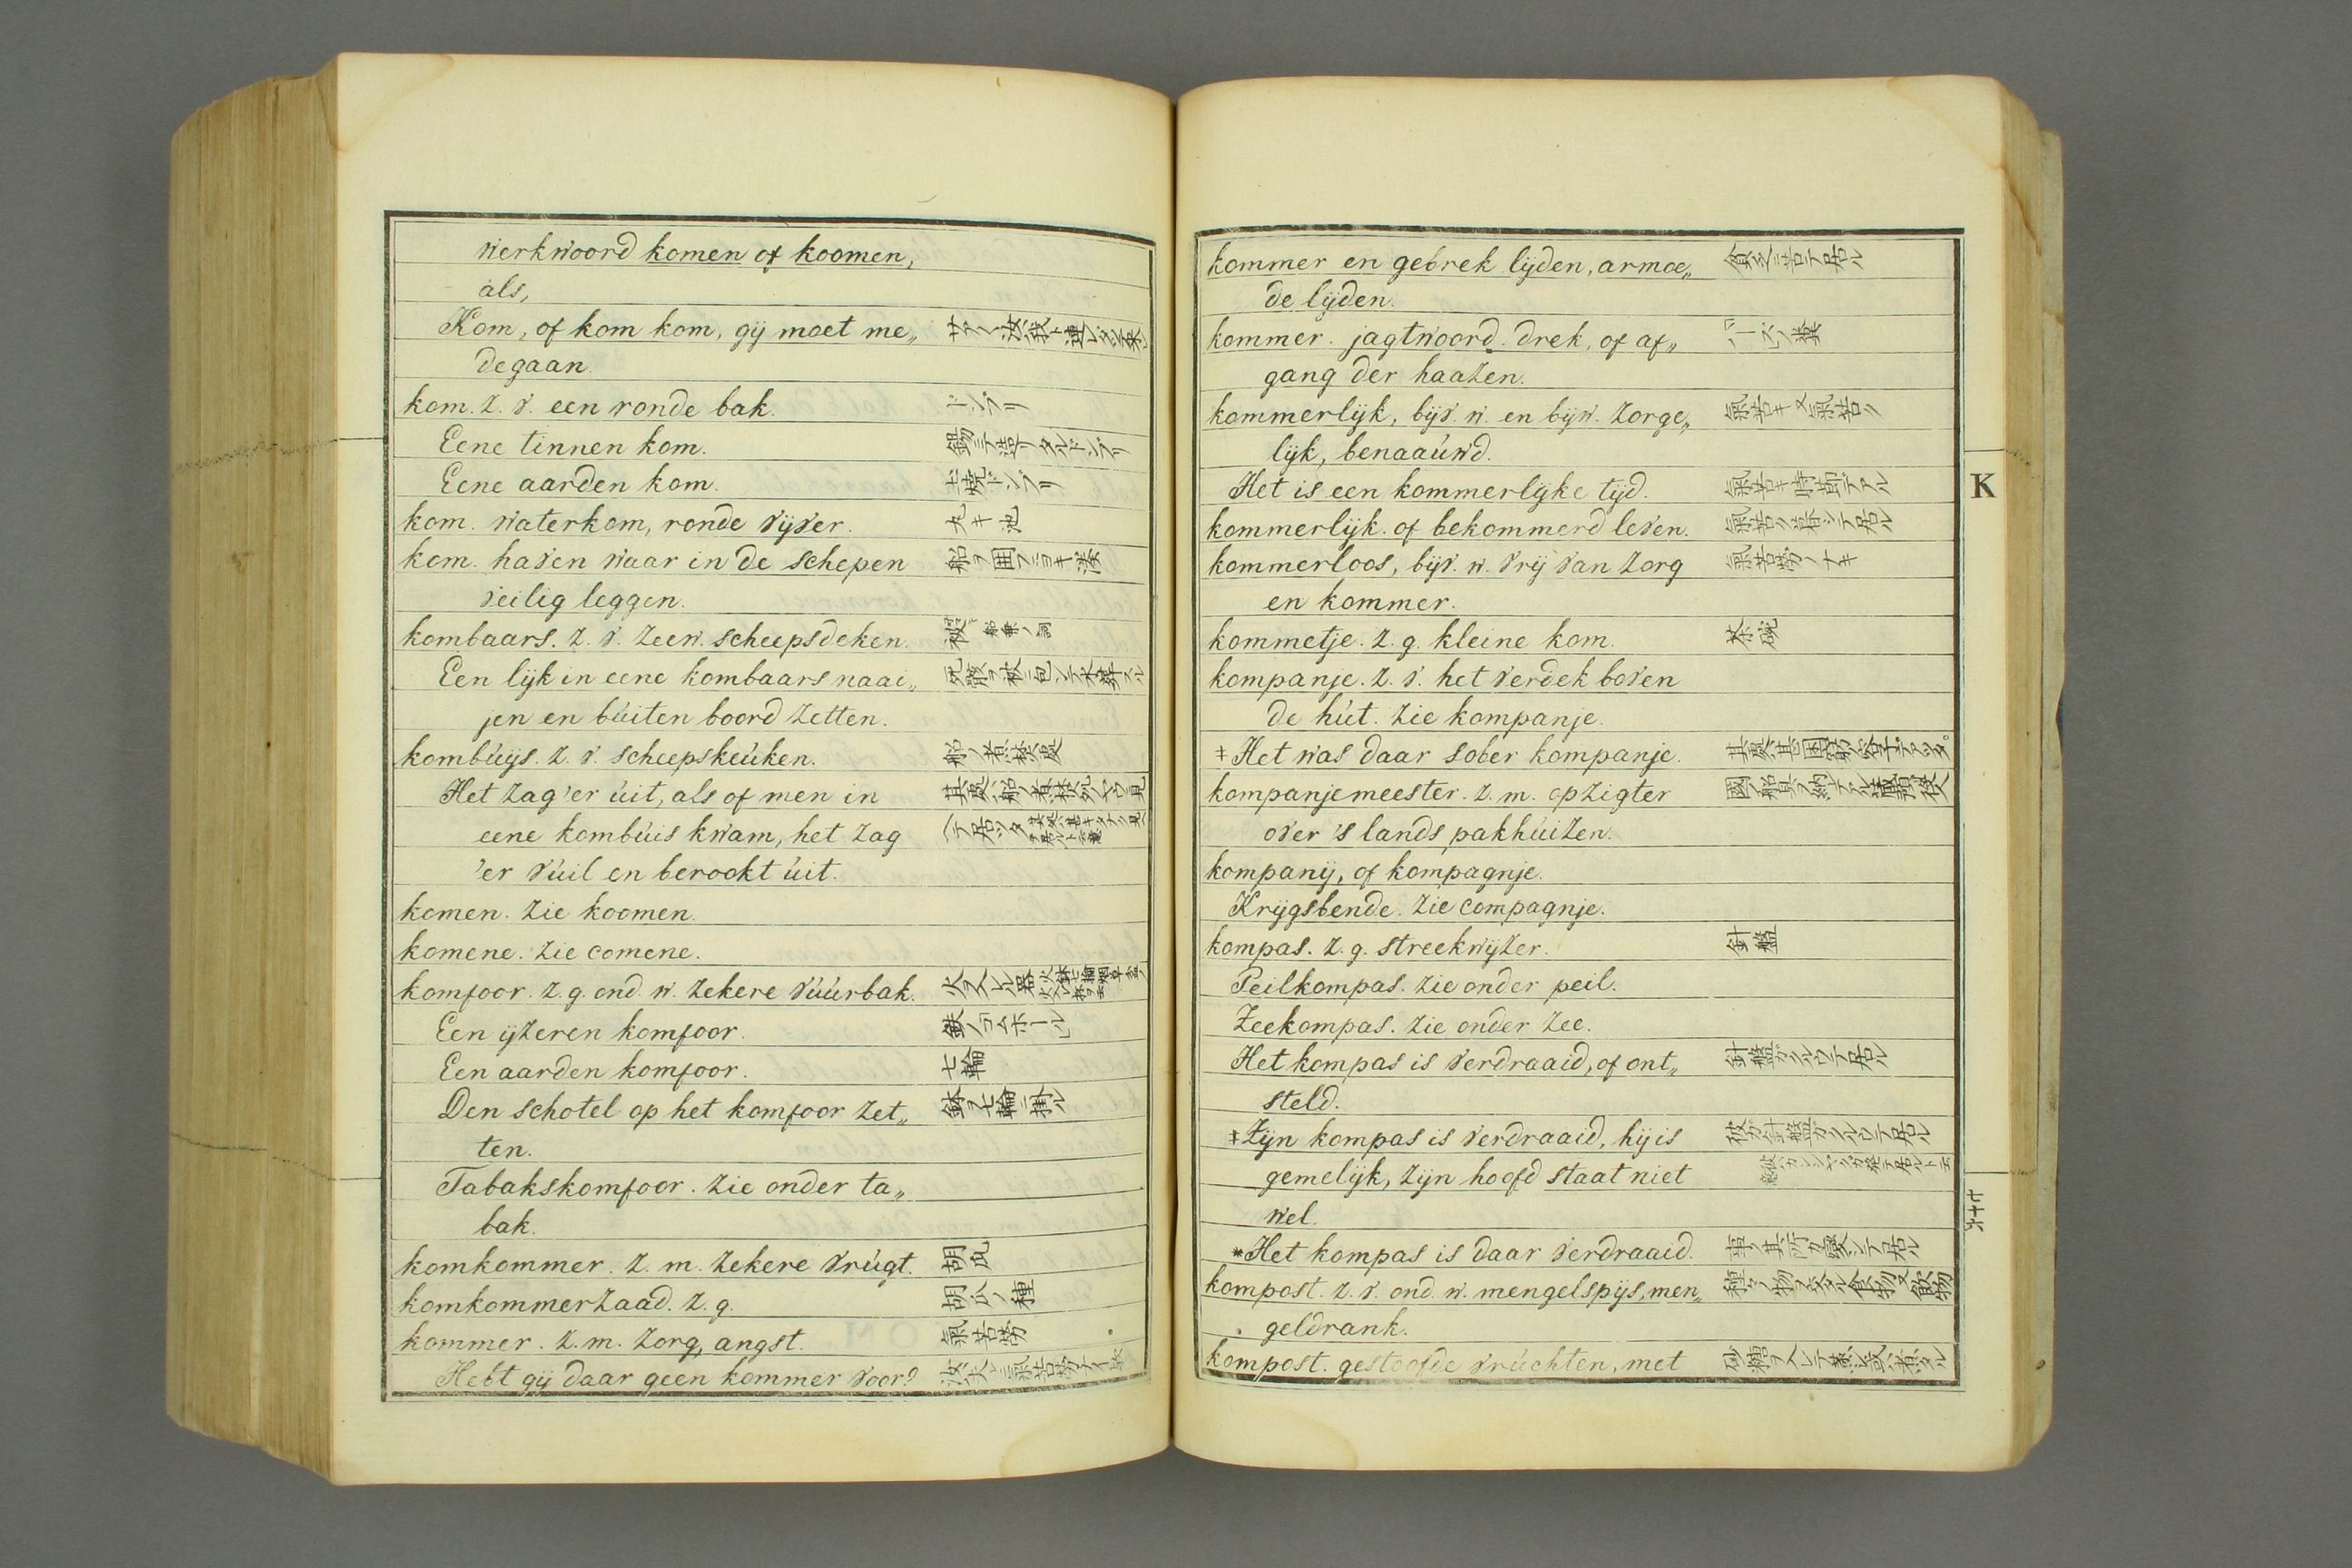 werkwoord komen of koomen,
als,
Kom, of kom kom, gij moet me„
degaan.
kom. z. v. een ronde bak. ドンブリ
Eene tinnen kom. 錫ニテ造リタルドンブリ
Eene aarden kom. 土焼ドンブリ
kom. waterkom, ronde vijver. 丸キ池
kom. haven waar in de schepen 船ヲ囲フニヨキ湊
veilig leggen.
kombaars. z. v. zeew. scheepsdeken.
Een lijk in eene kombaars naai„
jen en búiten boord zetten.
kombúijs. z. v. scheepskeúken. 船ノ煮焚処
Het zag 'er úit, als of men in
eene kombúis kwam, het zag
'er vúil en berookt úit.
komen. zie koomen.
komene. zie comene.
komfoor. z. g. ond. w. zekere vúúrbak. 火ヲ入レル器
Een ijzeren komfoor. 鉄ノコムホール
Een aarden komfoor. 七輪
Den schotel op het komfoor zet„ 鉢ヲ七輪ニ掛ル
ten.
Tabakskomfoor. zie onder ta„
bak.
komkommer. z. m. zekere vrúgt. 胡瓜
komkommerzaad. z. g. 胡瓜ノ種
kommer. z. m. zorg, angst. 氣苦労
Hebt gij daar geen kommer voor?
kommer en gebrek lijden, armoe„ 貧乏ニ苦テ居ル
de lijden.
kommer. jagtwoord. drek, of af„
gang der haazen.
kommerlijk, bijv. w. en bijw. zorge„ 氣苦キ又氣苦ク
lijk, benaaúwd.
Het is een kommerlijke tijd. 氣苦キ時節テアル
kommerlijk. of bekommerd leven. 氣苦ク暮シテ居ル
kommerloos, bijv. w. vrij van zorg 氣苦労ノナキ
en kommer.
kommetje. z. g. kleine kom. 茶碗
kompanje. z. v. het verdek boven
de hút. zie kompanje.
‡Het was daar sober kompanje.
kompanjemeester. z. m. opzigter
over 's lands pakhúizen.
kompanij, of kompagnje.
Krijgsbende. zie compagnje.
kompas. z. g. streekwijzer. 針盤
Peilkompas. zie onder peil.
Zeekompas. zie onder zee.
Het kompas is verdraaid, of ont„ 針盤ガクルヒテ居ル
steld.
‡Zijn kompas is verdraaid, hij is 彼ガ針盤ガクルヒテ居ル
gemelijk, zijn hoofd staat niet
wel.
*Het kompas is daar verdraaid. 事ノ其所ガ変シテ居ル
kompost. z. v. ond. w. mengelspijs, men„
geldrank.
kompost. gestoofde vrúchten, met
K